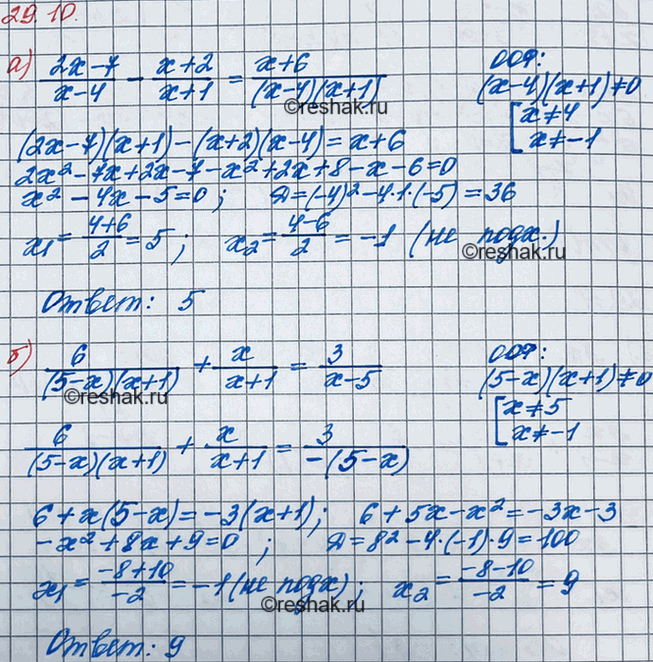 29.10.
а) (2x-7)/(x-4) - (x+2)/(x+1) = (x+6)/((x-4)(x+1))
ООФ:
(x-4)(x+1)≠0
[x≠4
x≠-1
©reshak.ru
(2x-7)(x+1)-(x+2)(x-4)=x+6
2x²-7x+2x-7-x²+2x+8-x-6=0
x²-4x-5=0; Д=(-4)²-4·1·(-5)=36
x₁=(4+6)/2=5; x₂=(4-6)/2=-1 (не подх.)
©reshak.ru
Ответ: 5
б) 6/((5-x)(x+1)) + x/(x+1) = 3/(x-5)
ООФ:
(5-x)(x+1)≠0
[x≠5
x≠-1
©reshak.ru
6/((5-x)(x+1)) + x/(x+1) = 3/(-(5-x))
6+x(5-x)=-3(x+1); 6+5x-x²=-3x-3
-x²+8x+9=0; Д=8²-4·(-1)·9=100
x₁=(-8+10)/(-2)=-1(не подх); x₂=(-8-10)/(-2)=9
©reshak.ru
Ответ: 9